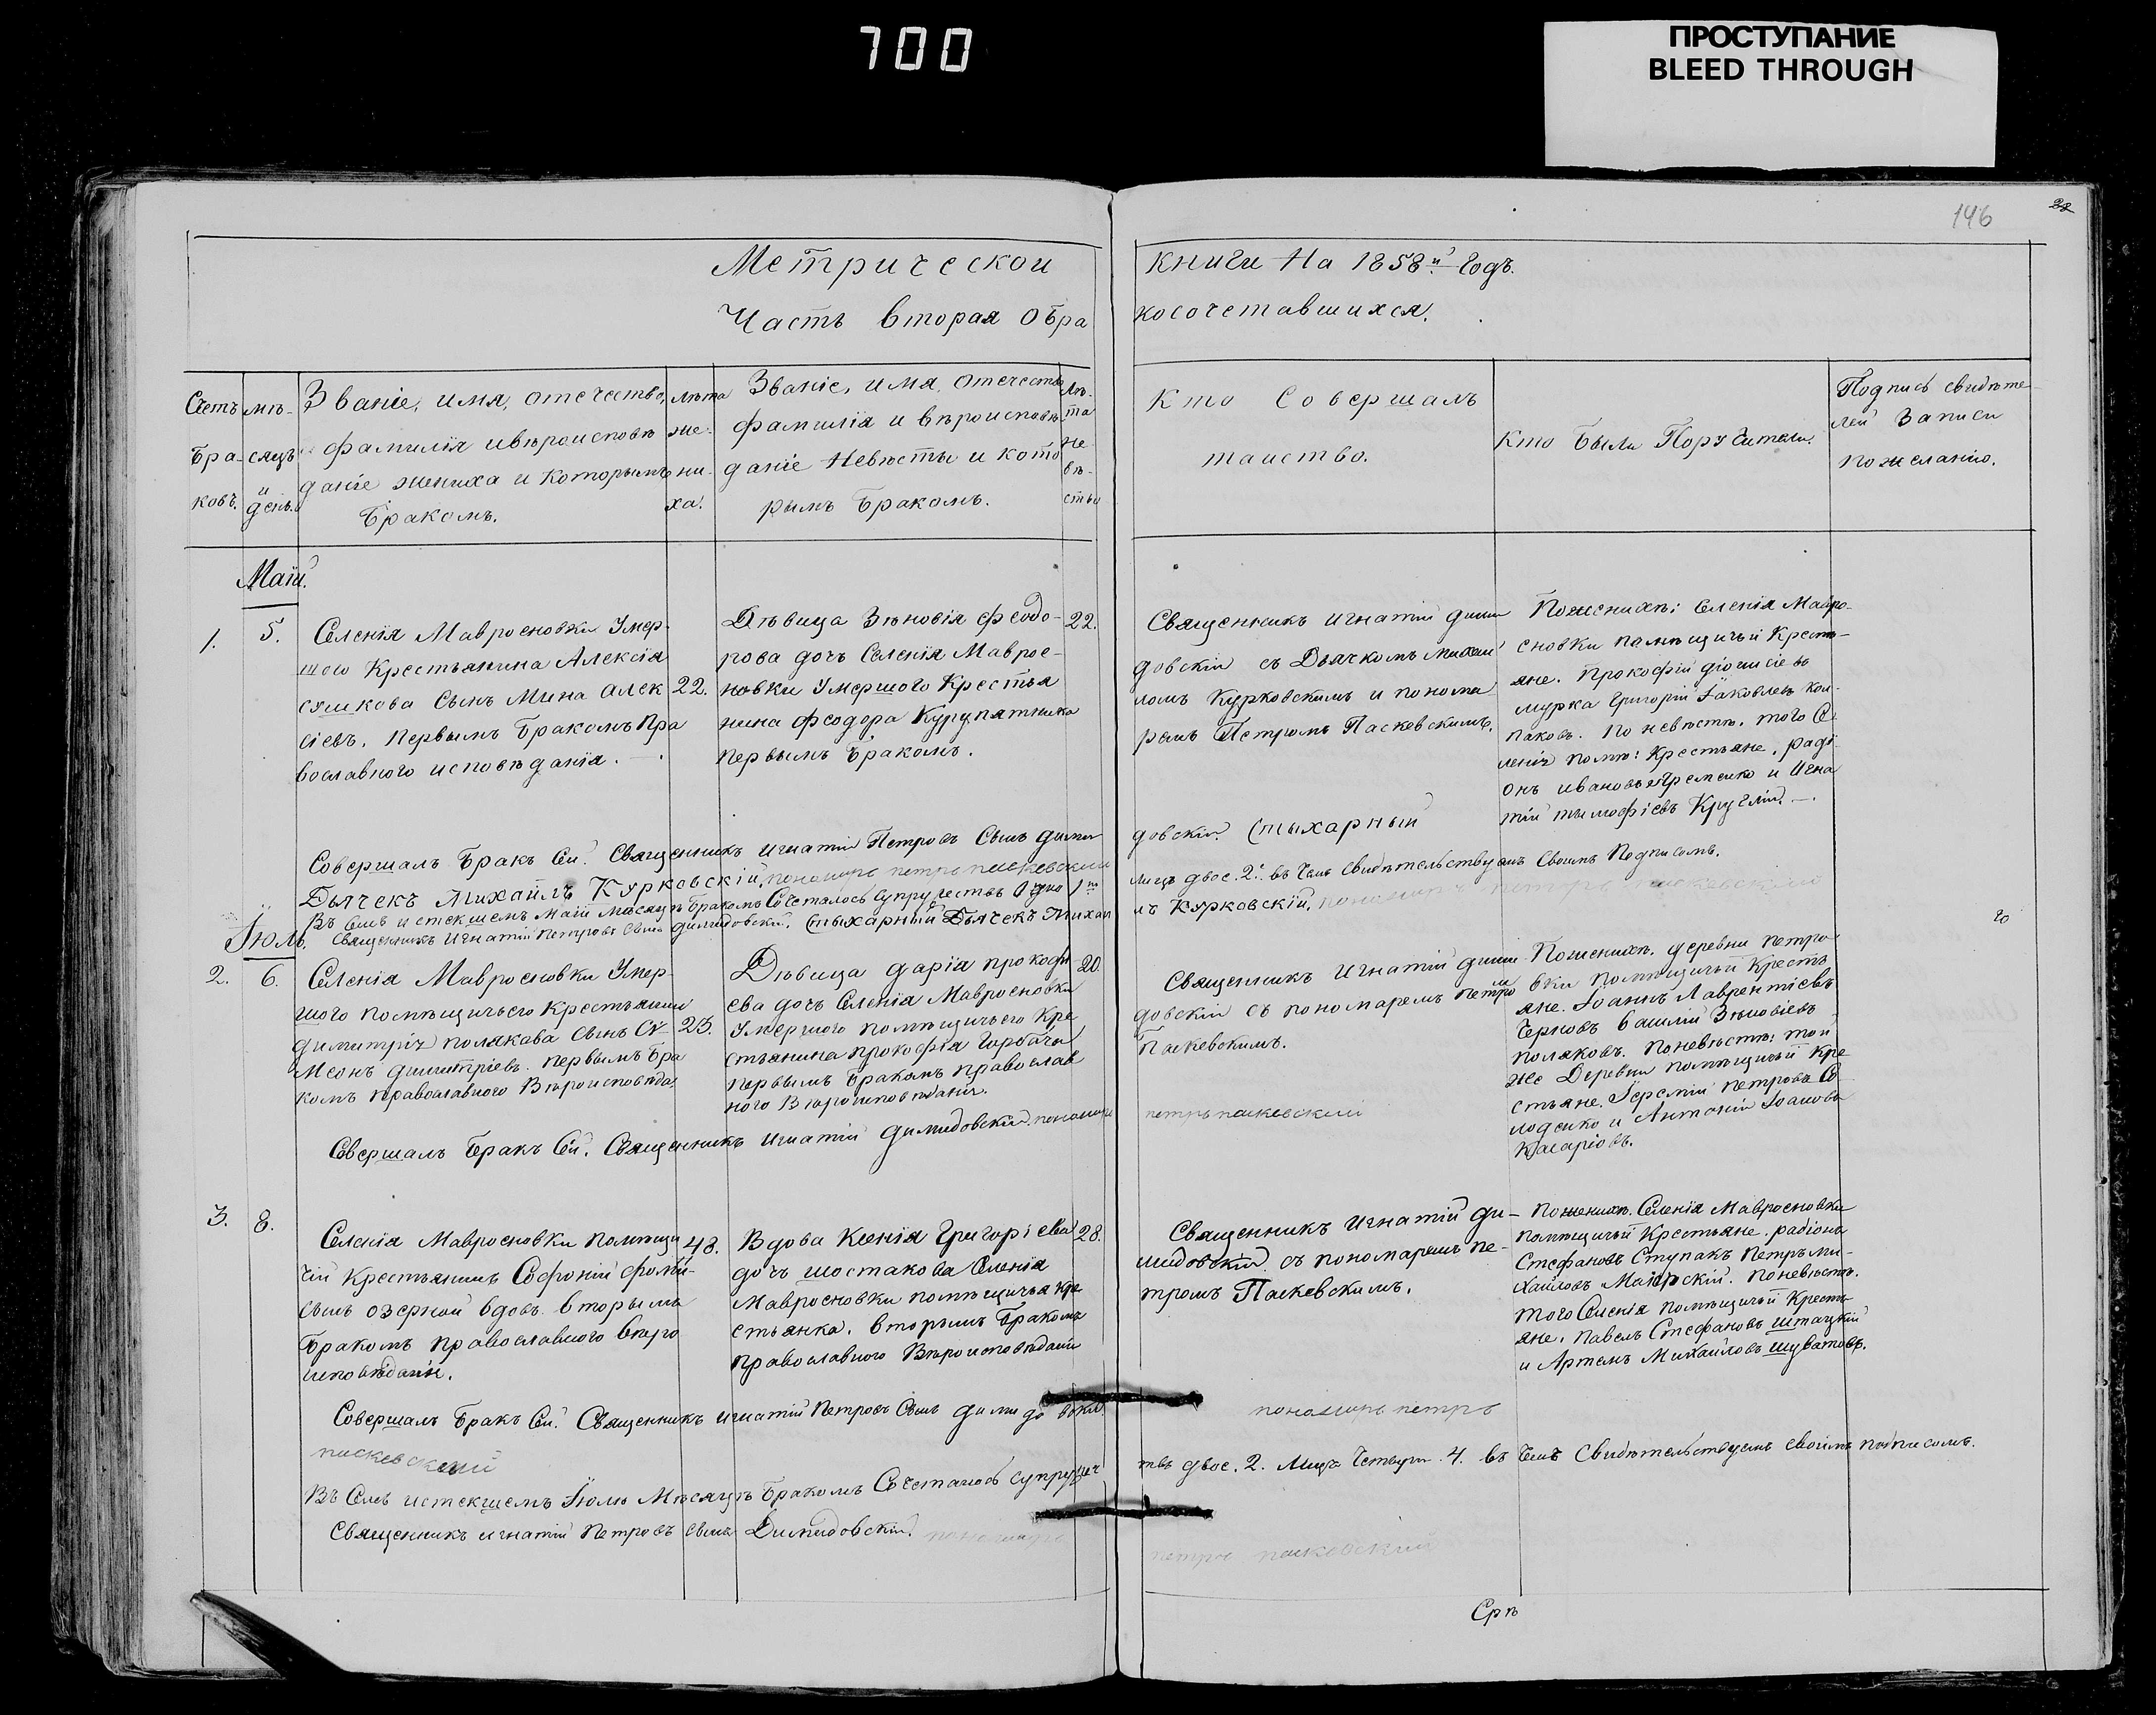 700
ПРОСТУПАНИЕ
BLEED THROUGH
146
Метрической книги на 1858й Годъ.
Часть вторая о бракосочетавшихся.
Счетъ Бра-ковъ.
мѣ-сяцъ и день.
Званіе, имя, отчество,
фамилія и вѣроисповѣ
даніе жениха и которымъ
бракомъ.
лѣта же-ни-ха.
Званіе, имя, отечество
фамилія и вѣроисповѣ
даніе Невѣсты и кото
рымъ бракомъ.
Лѣ-та не вѣ-сты
Кто Совершалъ
таинство.
Кто были Поручители.
Подпись свидѣте
лей Записи
по желанію.
Маій.
1. 5.
Селенія Мавроеновки Умер-
шого Крестьянина Алексія
сушкова Сынъ Мина Алек
сіевъ. первымъ бракомъ Пра
вославного исповѣданія.
22.
Дѣвица Зѣновія феодо-
рова дочь Селенія Маврое-
новки Умершого Крестья
нина феодора Курупятника
первымъ бракомъ.
22.
Священникъ Игнатій дими
довскій съ Дьячкомъ михаи
ломъ Курковскимъ и понома
ремъ Петромъ Паскевскимъ.
По женихѣ: Селенія Мавро-
еновки помѣщичьи Кресть-
яне. Прокофій діонисіевъ
мурка Григорій Іаковлевъ Кол-
паковъ. По невѣстѣ. того Се
ленія помѣ: Крестьяне. раді
онъ ивановъ Яременко и Игна
тій тимофіевъ Круглій.
Совершалъ бракъ Сей. Священникъ Игнатій Петровъ Сынъ димидовскій. Стыхарный
Дьячекъ Михаилъ Курковскій, пономарь петръ паскевскій
Въ Семъ истекшемъ Маій Мѣсяцѣ бракомъ Сочеталось супружество Одно 1но лицъ двое. 2. въ чемъ свидѣтельствуемъ своимъ Подписомъ.
Священникъ Игнатій Петровъ Сынъ димидовскій. Стыхарный Дьячекъ Михаилъ Курковскій, пономарь петръ паскевскій
Іюль.
2. 6.
Селенія Мавроеновки Умер-
шого помѣщичьего Крестьянина
димитрія полякова Сынъ Си-
меонъ димитріевъ. первымъ бра
комъ православного Вѣроисповѣда
25.
Дѣвица дарія прокофі
ева дочь Селенія Мавроеновки
Умершого помѣщичьего Кре
стьянина прокофія Горбача
первымъ бракомъ православ
ного Вѣроисповѣданія.
20.
Священникъ Игнатій дими
довскій съ пономаремъ петромъ
Паскевскимъ.
По женихѣ. деревни петро
вки помѣщичьи Кресть
яне. Іоаннъ Лаврентіевъ
Черновъ Василій Зѣновіевъ
поляковъ. По невѣстѣ: той
же Деревни помѣщичьи Кре
стьяне. Іеремій петровъ Со
лоденко и Антоній Іоановъ
Касаріовъ.
Совершалъ бракъ Сей. Священникъ Игнатій димидовскій. пономарь петръ паскевскій
3. 8.
Селенія Мавроеновки помѣщи
чій Крестьянинъ Софроній фоми-
сынъ озерной вдовъ. вторымъ
бракомъ православного вѣро
исповѣданія.
48.
Вдова Ксенія Григоріева
дочь шостакова Селенія
Мавроеновки помѣщичья кре
стьянка. вторымъ бракомъ
православного Вѣроисповѣданія
28.
Священникъ Игнатій ди-
мидовскій съ пономаремъ пе-
тромъ Паскевскимъ.
По женихѣ. Селенія Мавроеновки
помѣщичьи Крестьяне. радіонъ
Стефановъ Ступакъ Петръ ми-
хаиловъ Маирскій. По невѣстѣ.
того Селенія помѣщичьи Кресть
яне. павелъ Стефановъ штацкій
и Артемъ Михаиловъ шуватовъ.
Совершалъ бракъ Сей. Священникъ Игнатій Петровъ Сынъ димидовскій. пономарь петръ
паскевскій
Въ Семъ истекшемъ Іюлю Мѣсяцѣ бракомъ Сочеталось супружествъ двое. 2. Лицъ Четыри. 4. въ чемъ Свидѣтельствуемъ своимъ подписомъ.
Священникъ Игнатій Петровъ сынъ Димидовскій. пономарь петръ паскевскій